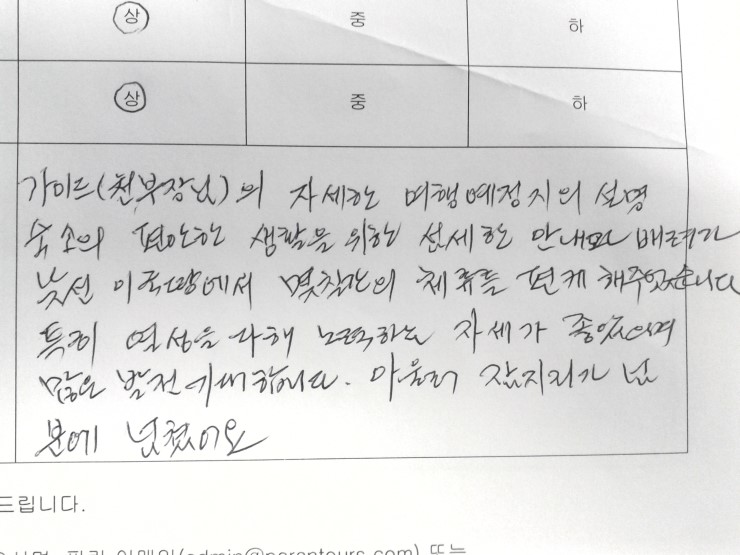 상 중 하
상 중 하
가이드(천부장님)의 자세한 여행예정지의 설명
숙소의 편안한 생활을 위한 섬세한 안내와 배려가
낯선 이국땅에서 몇칠간의 체류를 편케 해주었습니다
특히 열성을 다해 노력하는 자세가 좋았으며
많은 발전 기대합니다. 아울러 잠자리가 넘
분에 넘쳤어요
드립니다.